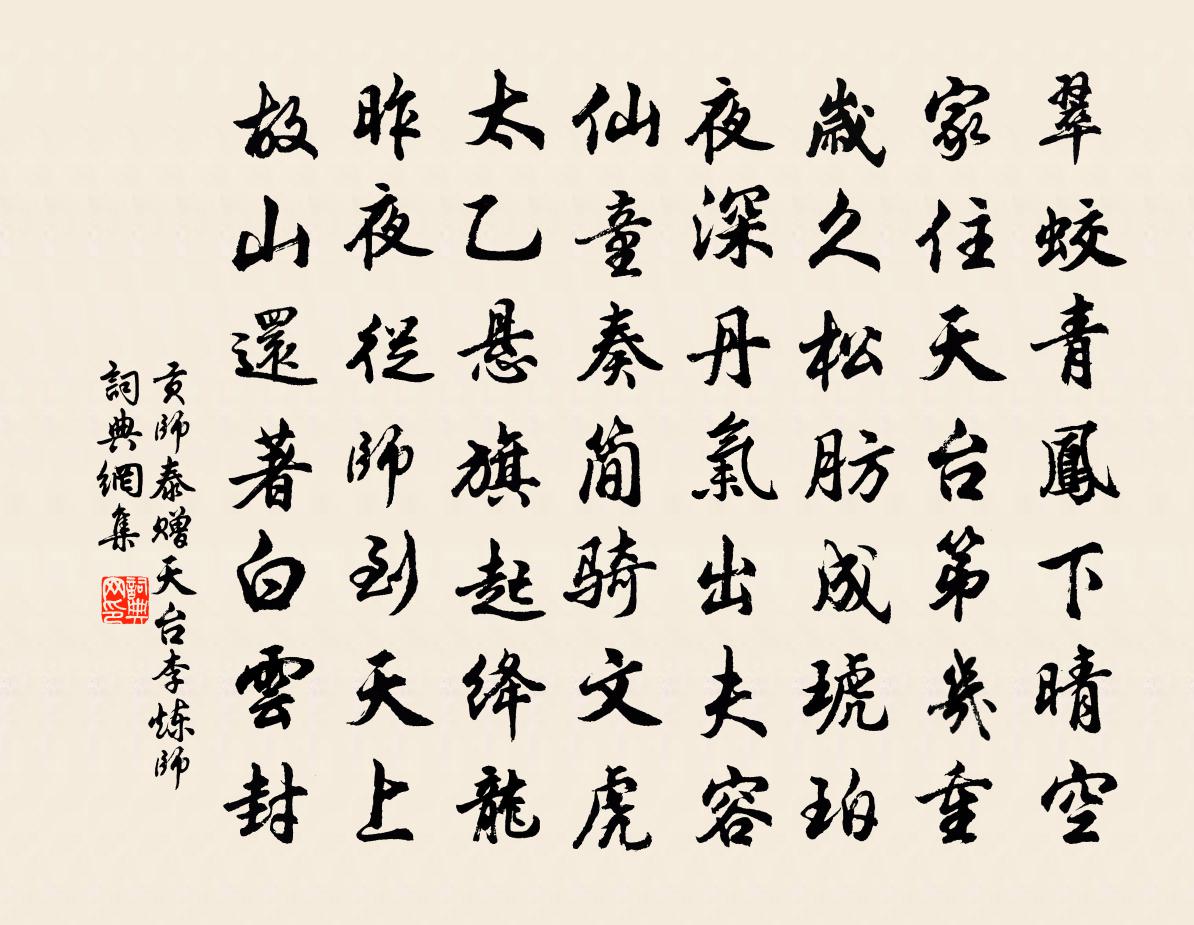 翠蛟青鳳下晴空
家住天台第幾重
歲久松肪成琥珀
夜深丹氣出夫容
仙童奏简骑文虎
太乙悬旗起绛龍
昨夜從師到天上
故山還著白雲封
贡師泰赠天台李炼師
詞典網集
詞典网印